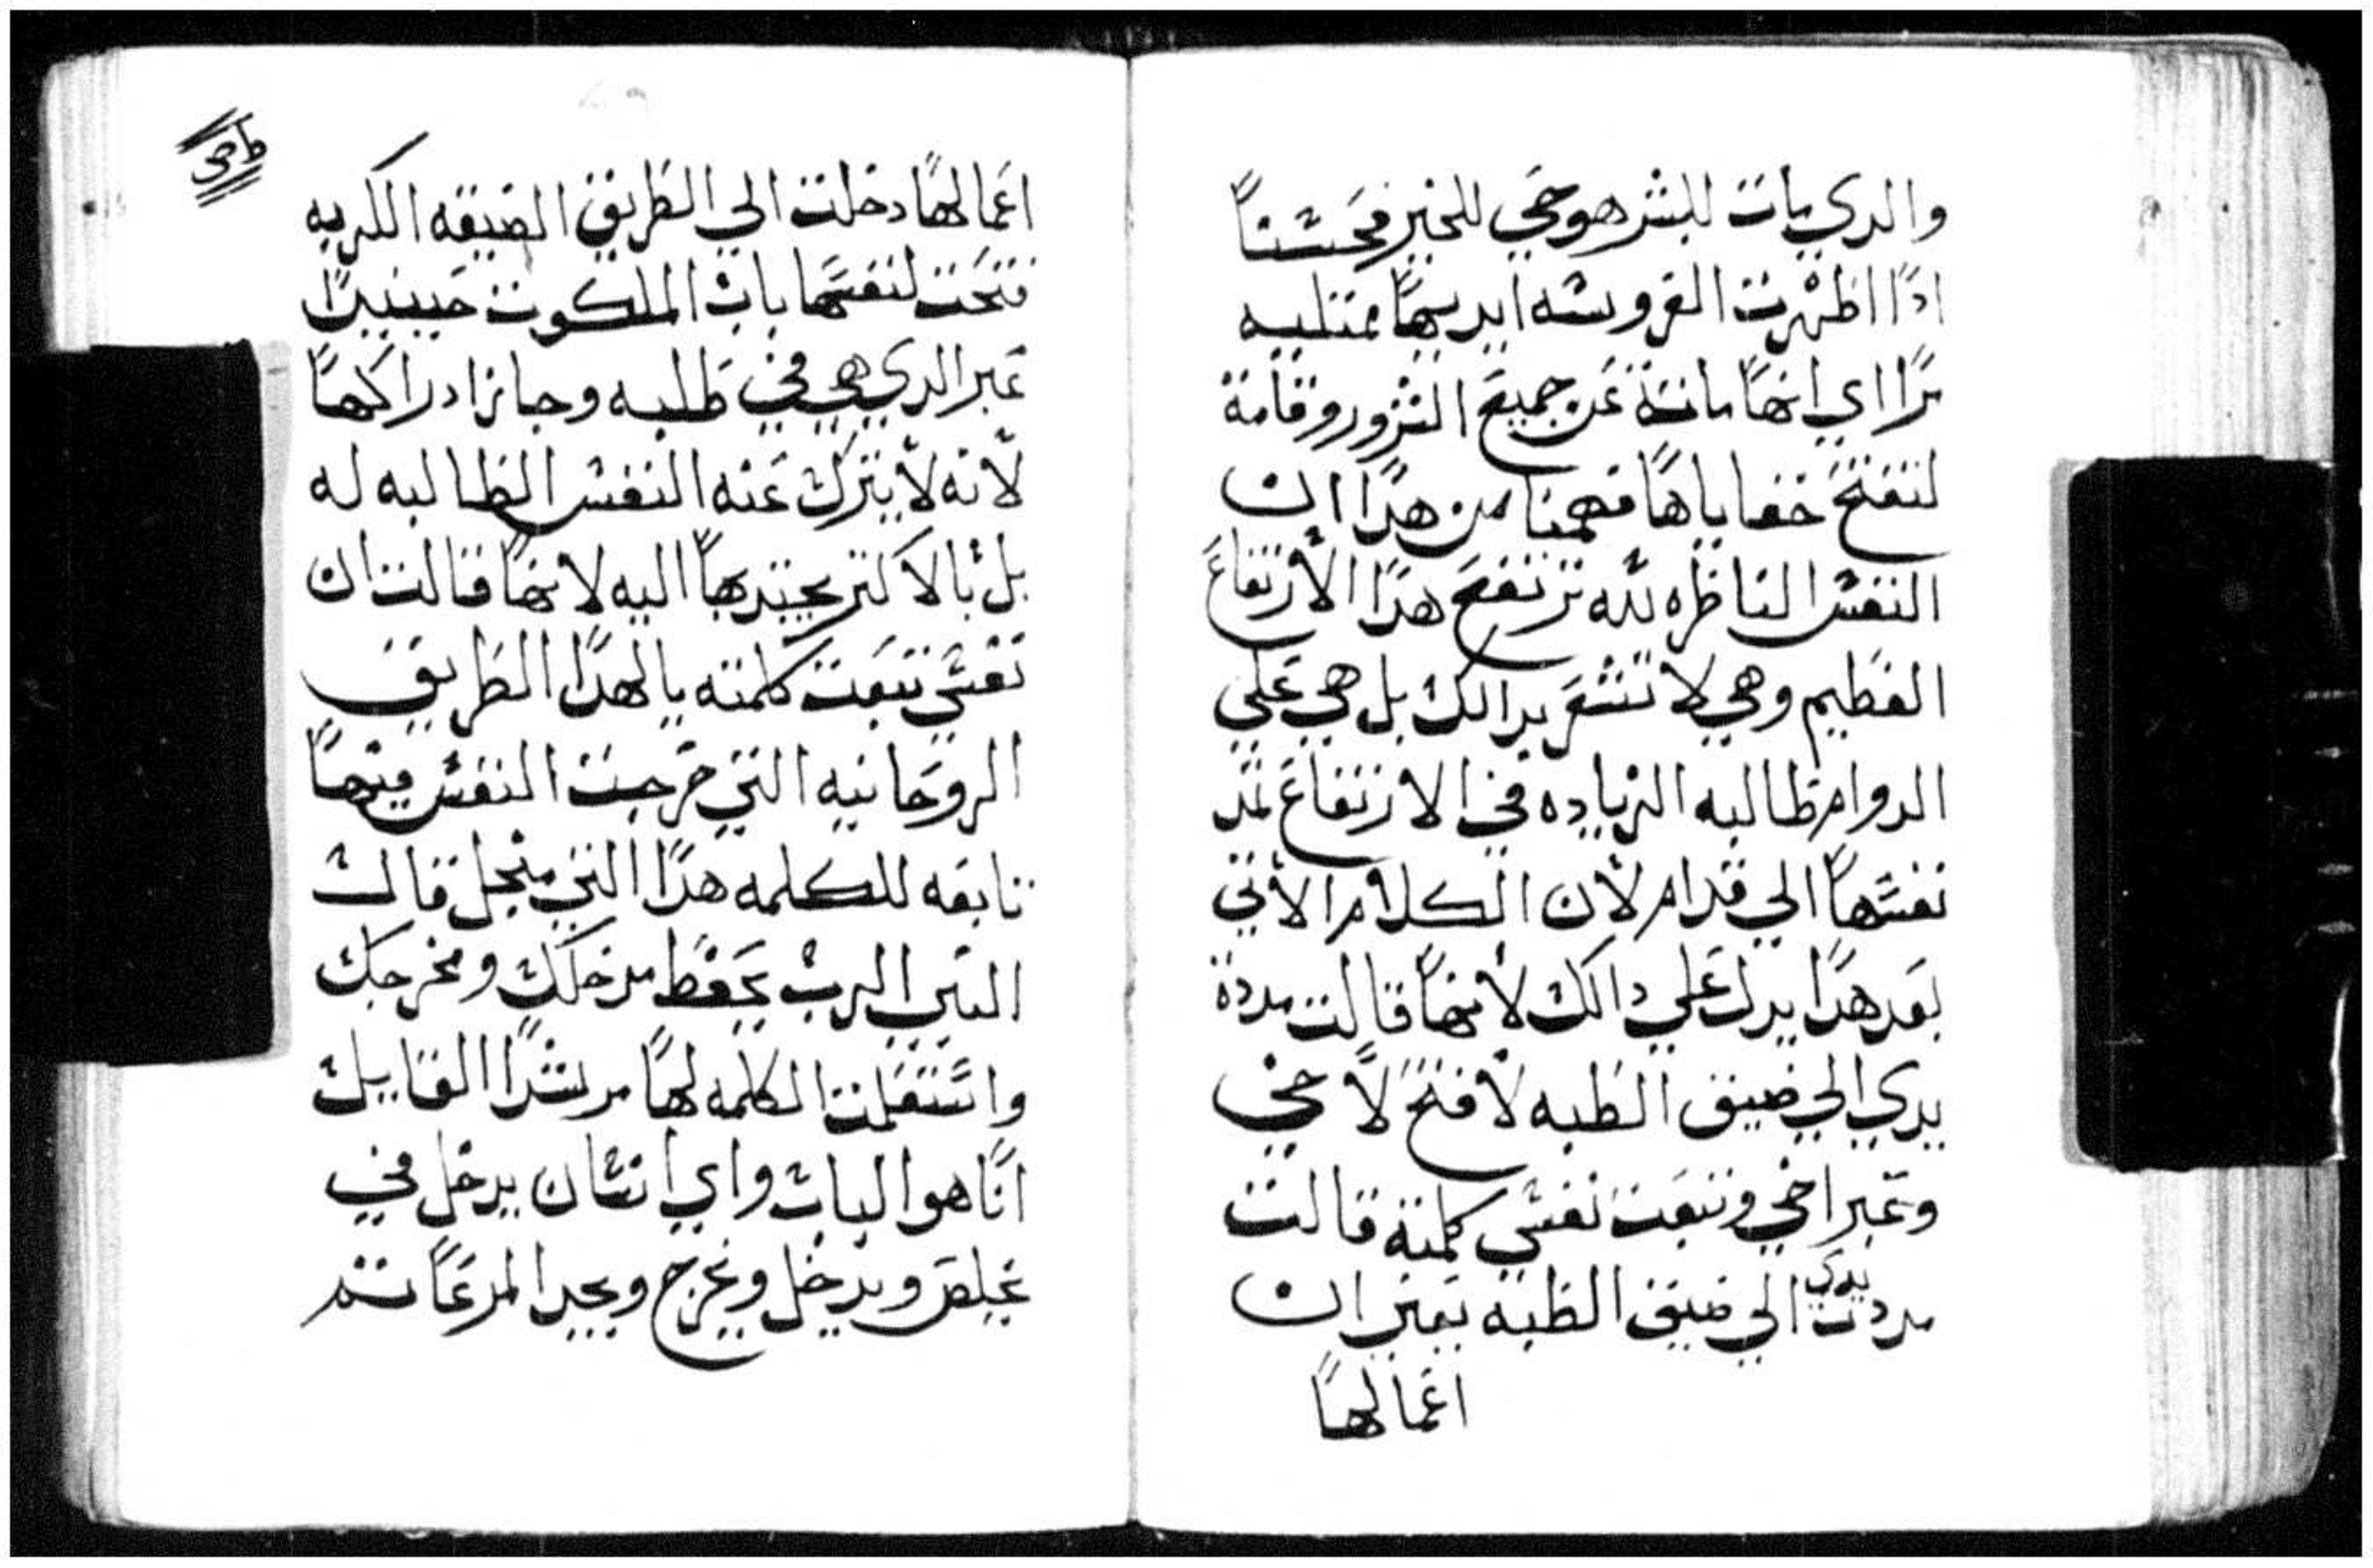 والدي يات للشر هو حي للخير فحسناً
اداً اظهرت العروسه ايديها ممتليه
مراً اي انها مايته عن جميع الشرور وقامة
لتفتح خفاياها ففهمنا من هدا ان
النفس الناظره لله ترتفع هدا الارتفاع
العظيم وهي لا تشعر بدالك بل هي علي
الدوام طالبه الزياده في الارتفاع تمد
نفسها الي قدام لان الكلام الاتي
بعد هدا يدل علي دالك لانها قالت مددة
يدي الي ضيق الطبه لافتح لاخي
وعبر اخي وتبعت نفسي كلمتة قالت
مددت يدي الي ضيق الطبه يعني ان
اعمالها
اعمالها دخلت الي الطريق الضيقه الكربه
فتحت لنفسها باب الملكوت حينيداً
عبر الدي هي في طلبه وجايزا دراكها
لانه لا يترك عنه النفس الطالبه له
بل بالاكتر يجتدبها اليه لانها قالت ان
نفسي تبعت كلمته يا لهدا الطريق
الروحانيه التي خرجت النفس فيها
تابعه للكلمه هدا التي منجل قالت
النبي الرب يحفظ مدخلك ومخرجك
واستعلنت الكلمه لها مرشداً القايل
انا هو الباب واي انسان يدخل في
يخلص ويدخل ويخرج ويجد المرعا ثم